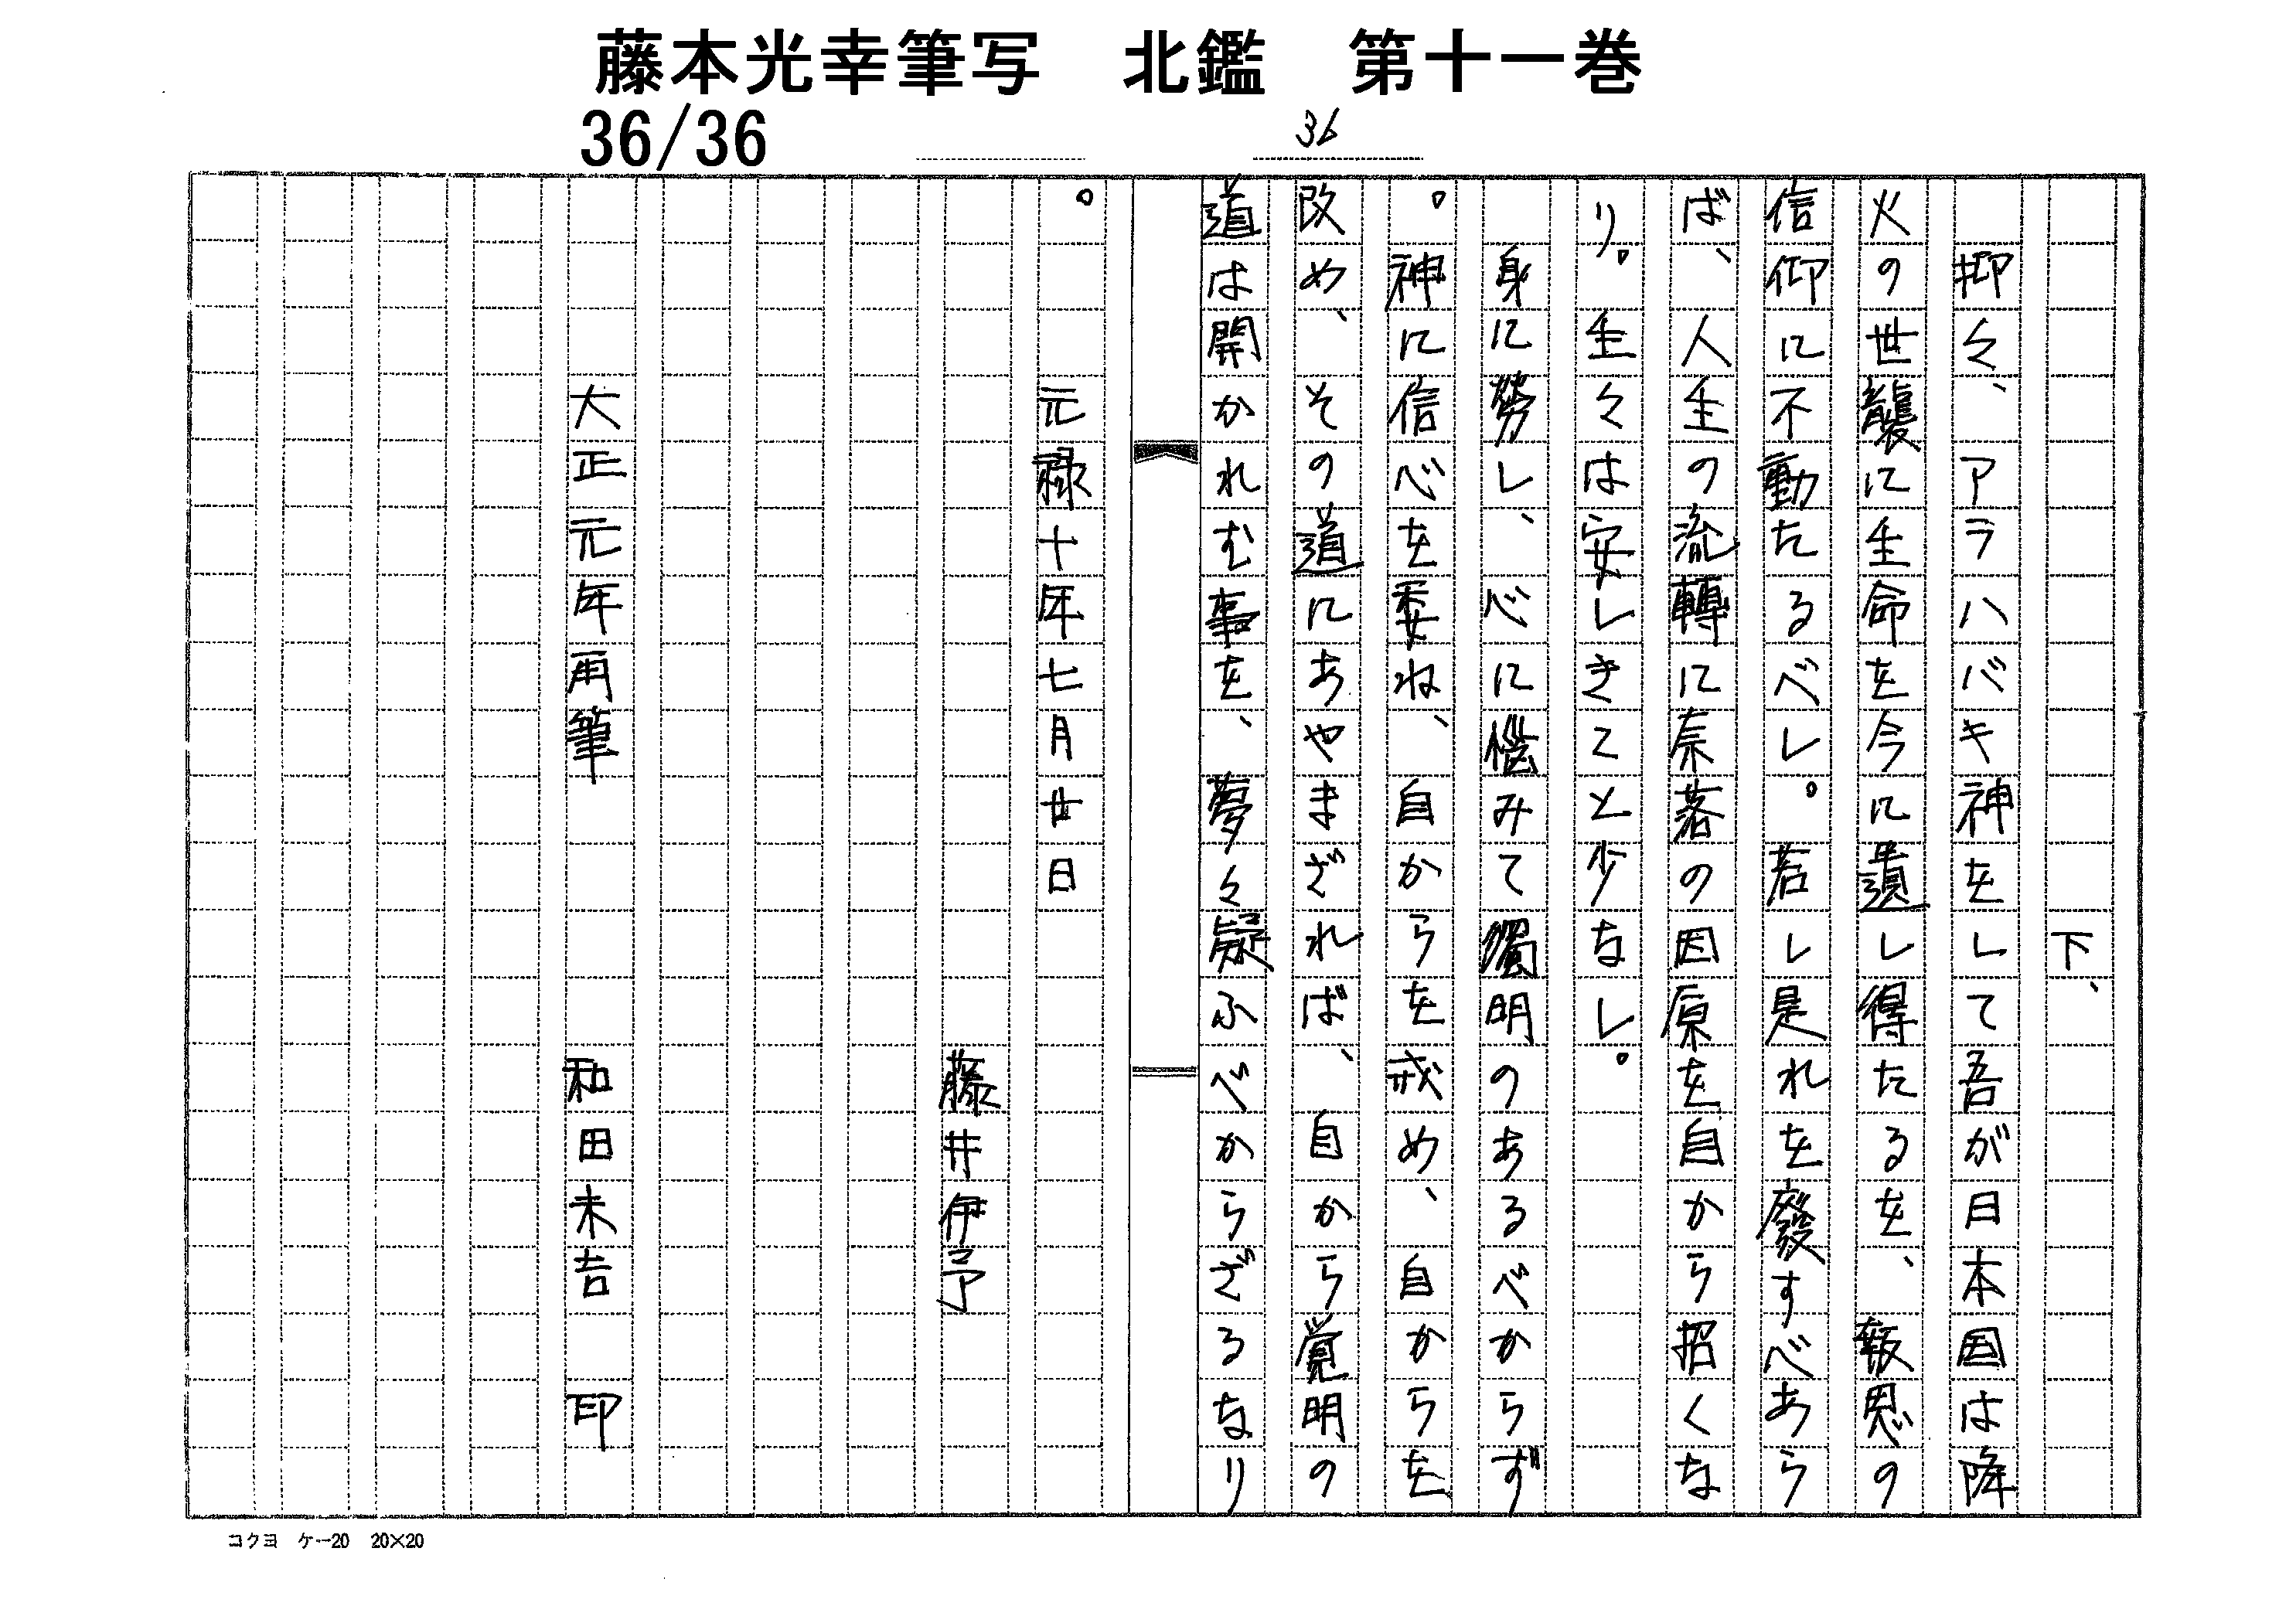 藤本光幸筆写　北鑑　第十一巻
36/36
36
下、
抑々、アラハバキ神をして吾が日本国は降
火の世襲に生命を今に遺し得たるを、報恩の
信仰に不動たるべし。若し是れを廢すべあら
ば、人生の流轉に奈落の因原を自から招くな
り。生々は安しきこと少なし。
身に労し、心に悩みて獨明のあるべからず
。神に信心を委ね、自からを戒め、自からを
改め、その道にあやまざれば、自から覚明の
道は開かれむ事を、夢々疑ふべからざるなり
。
元禄十年七月廿日
藤井伊予
大正元年再筆
和田末吉　印
コクヨ　ケー20　20×20